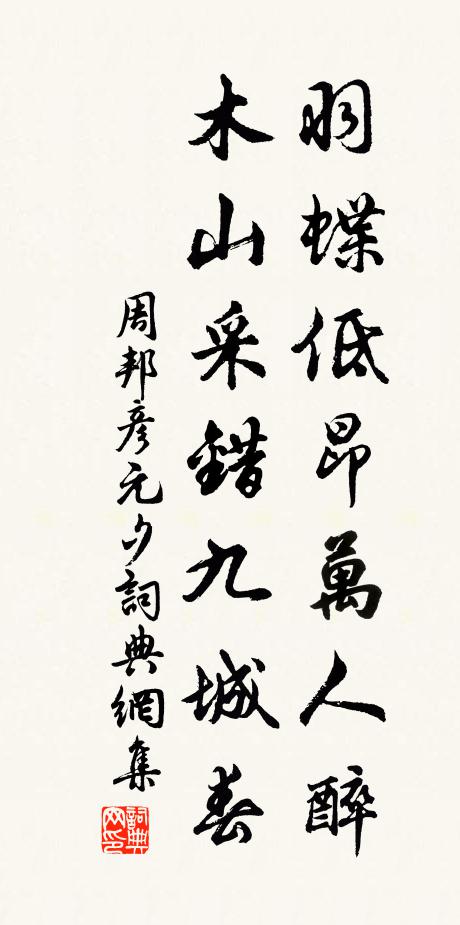 羽蝶低昂萬人醉
木山采錯九城春
周邦彥元夕詞典網集
詞典网印